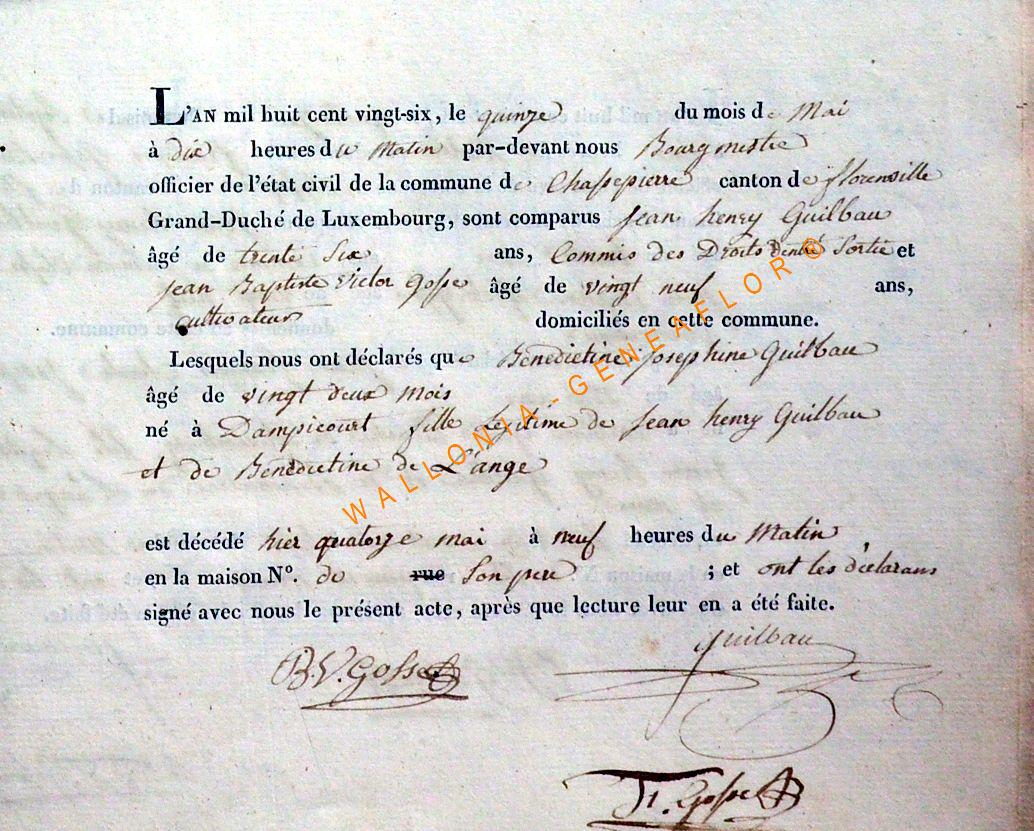 L'AN mil huit cent vingt-six, le quinze du mois de Mai
à dix heures du Matin par-devant nous Bourgmestre
officier de l'état civil de la commune de Chassepierre canton de florenville
Grand-Duché de Luxembourg, sont comparus Jean henry Guilbau
âgé de trente Six ans, Commis des Droits d'entré Sortie et
Jean Baptiste Victor Gosse âgé de vingt neuf ans,
Cultivateur domiciliés en cette commune.
Lesquels nous ont déclarés que Bénédictine Josephine Guilbau
âgé de vingt deux mois
né à Dampicourt fille legitime de Jean henry Guilbau
et de Bénédictine de L'ange
est décédé hier quatorze mai à neuf heures du Matin
en la maison N°. de rue Son pere ; et ont les déclarans
signé avec nous le présent acte, après que lecture leur en a été faite.
Guilbau
B.V. Gosse
Gosse
WALLONIA-GENEAFLOR®